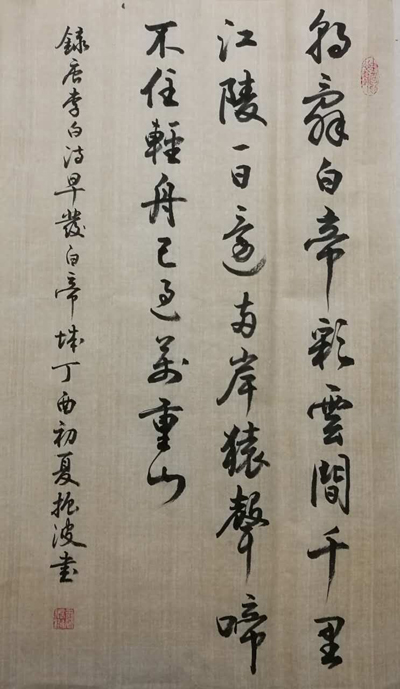 朝辭白帝彩雲間千里
江陵一日還兩岸猿聲啼
不住輕舟已過萬重山
錄唐李白詩早發白帝城丁酉初夏振波書